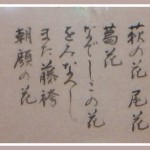 萩の花 尾花
葛花
なでしこの花
をみなへし
また藤袴
朝顔の花